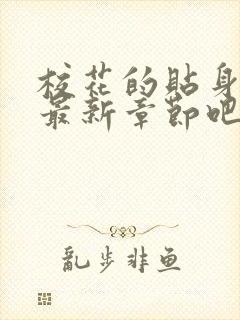 校花的貼身
最新章節吧
亂步非鱼